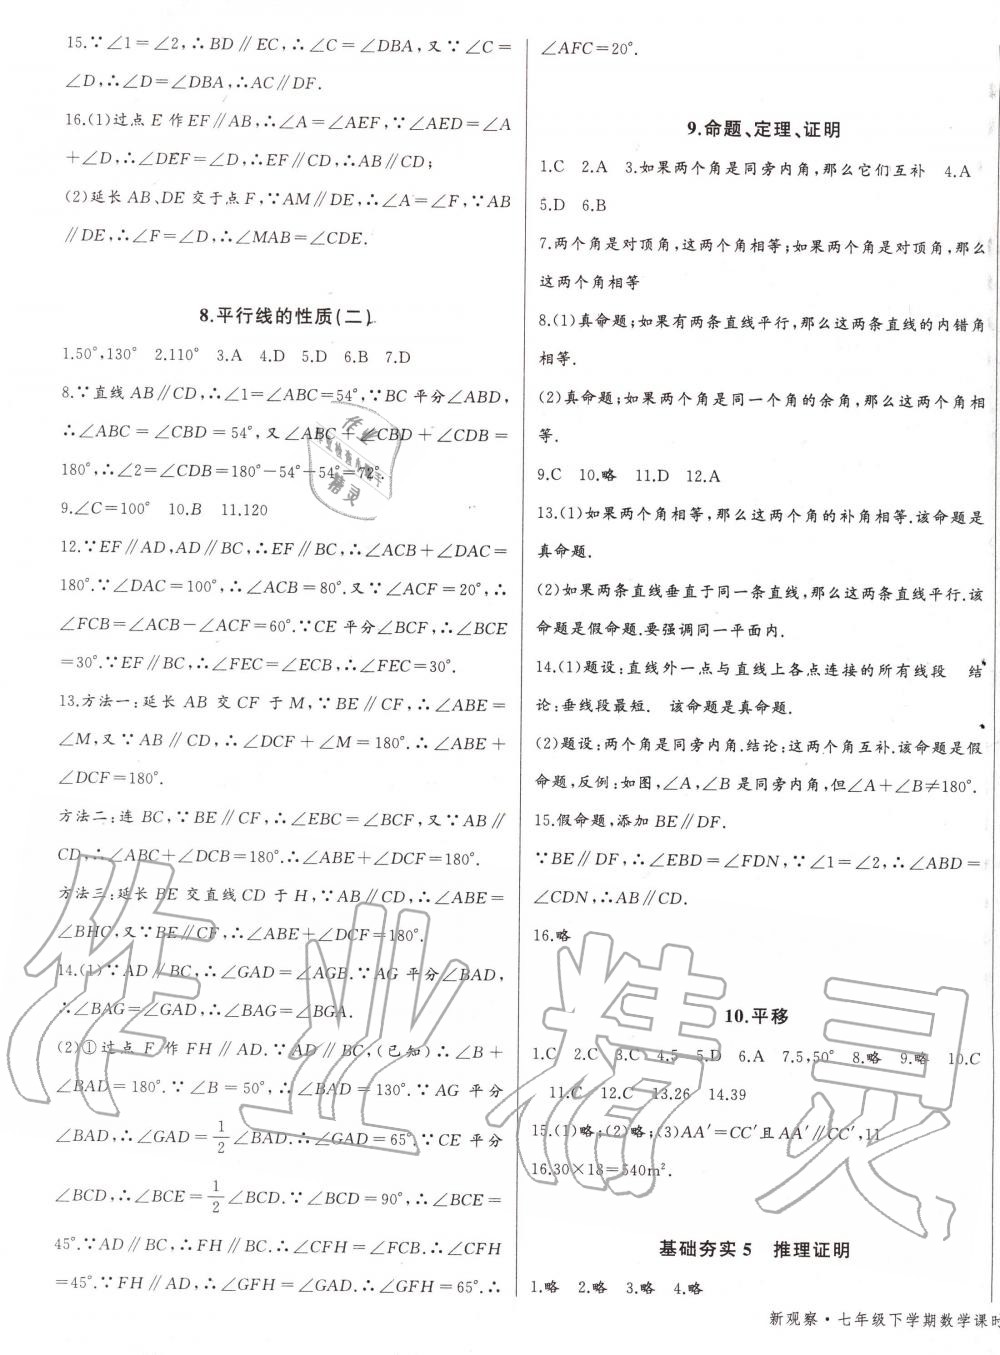 15.∵∠1＝∠2,∴BD∥EC,∴∠C＝∠DBA,又∵∠C＝
∠D,∴∠D＝∠DBA,∴AC∥DF.
16.(1)过点E作EF∥AB,∴∠A＝∠AEF,∵∠AED＝∠A
＋∠D,∴∠DEF＝∠D,∴EF∥CD,∴AB∥CD;
(2)延长AB、DE交于点F,∵AM∥DE,∴∠A＝∠F,∵AB
∥DE,∴∠F＝∠D,∴∠MAB＝∠CDE.
8.平行线的性质(二)
1.50°,130° 2.110° 3.A 4.D 5.D 6.B 7.D
8.∵直线AB∥CD,∴∠1＝∠ABC＝54°,∵BC平分∠ABD,
∴∠ABC＝∠CBD＝54°,又∠ABC＋∠CBD＋∠CDB＝
180°,∴∠2＝∠CDB＝180°－54°－54°＝72°.
9.∠C＝100° 10.B 11.120
12.∵EF∥AD,AD∥BC,∴EF∥BC,∴∠ACB＋∠DAC＝
180°.∵∠DAC＝100°,∴∠ACB＝80°.又∵∠ACF＝20°,∴
∠FCB＝∠ACB－∠ACF＝60°.∵CE平分∠BCF,∴∠BCE
＝30°.∵EF∥BC,∴∠FEC＝∠ECB,∴∠FEC＝30°.
13.方法一:延长AB交CF于M,∵BE∥CF,∴∠ABE＝
∠M,又∵AB∥CD,∴∠DCF＋∠M＝180°.∴∠ABE＋
∠DCF＝180°.
方法二:连BC,∵BE∥CF,∴∠EBC＝∠BCF,又∵AB∥
CD,∴∠ABC＋∠DCB＝180°.∴∠ABE＋∠DCF＝180°.
方法三:延长BE交直线CD于H,∵AB∥CD,∴∠ABE＝
∠BHC,又∵BE∥CF,∴∠ABE＋∠DCF＝180°.
14.(1)∵AD∥BC,∴∠GAD＝∠AGB.∵AG平分∠BAD,
∴∠BAG＝∠GAD,∴∠BAG＝∠BGA.
(2)①过点F作FH∥AD.∵AD∥BC,(已知)∴∠B＋
∠BAD＝180°.∵∠B＝50°,∴∠BAD＝130°.∵AG平分
∠BAD,∴∠GAD＝1/2∠BAD.∴∠GAD＝65°.∵CE平分
∠BCD,∴∠BCE＝1/2∠BCD.∵∠BCD＝90°,∴∠BCE＝
45°.∵AD∥BC,∴FH∥BC.∴∠CFH＝∠FCB.∴∠CFH
＝45°.∵FH∥AD,∴∠GFH＝∠GAD,∴∠GFH＝65°.∴
∠AFC＝20°.
9.命题、定理、证明
1.C 2.A 3.如果两个角是同旁内角,那么它们互补 4.A
5.D 6.B
7.两个角是对顶角,这两个角相等;如果两个角是对顶角,那么
这两个角相等
8.(1)真命题;如果有两条直线平行,那么这两条直线的内错角
相等.
(2)真命题;如果两个角是同一个角的余角,那么这两个角相
等.
9.C 10.略 11.D 12.A
13.(1)如果两个角相等,那么这两个角的补角相等.该命题是
真命题.
(2)如果两条直线垂直于同一条直线,那么这两条直线平行.该
命题是假命题.要强调同一平面内.
14.(1)题设:直线外一点与直线上各点连接的所有线段 结
论:垂线段最短. 该命题是真命题.
(2)题设:两个角是同旁内角.结论:这两个角互补.该命题是假
命题,反例:如图,∠A,∠B是同旁内角,但∠A＋∠B≠180°.
15.假命题,添加BE∥DF.
∵BE∥DF,∴∠EBD＝∠FDN,∵∠1＝∠2,∴∠ABD＝
∠CDN,∴AB∥CD.
16.略
10.平移
1.C 2.C 3.C 4.5 5.D 6.A 7.5,50° 8.略 9.略 10.C
11.C 12.C 13.26 14.39
15.(1)略;(2)略;(3)AA′＝CC′且AA′∥CC′,11
16.30×18＝540m².
基础夯实5 推理证明
1.略 2.略 3.略 4.略
新观察·七年级下学期数学课时
作业精灵
作业
精灵